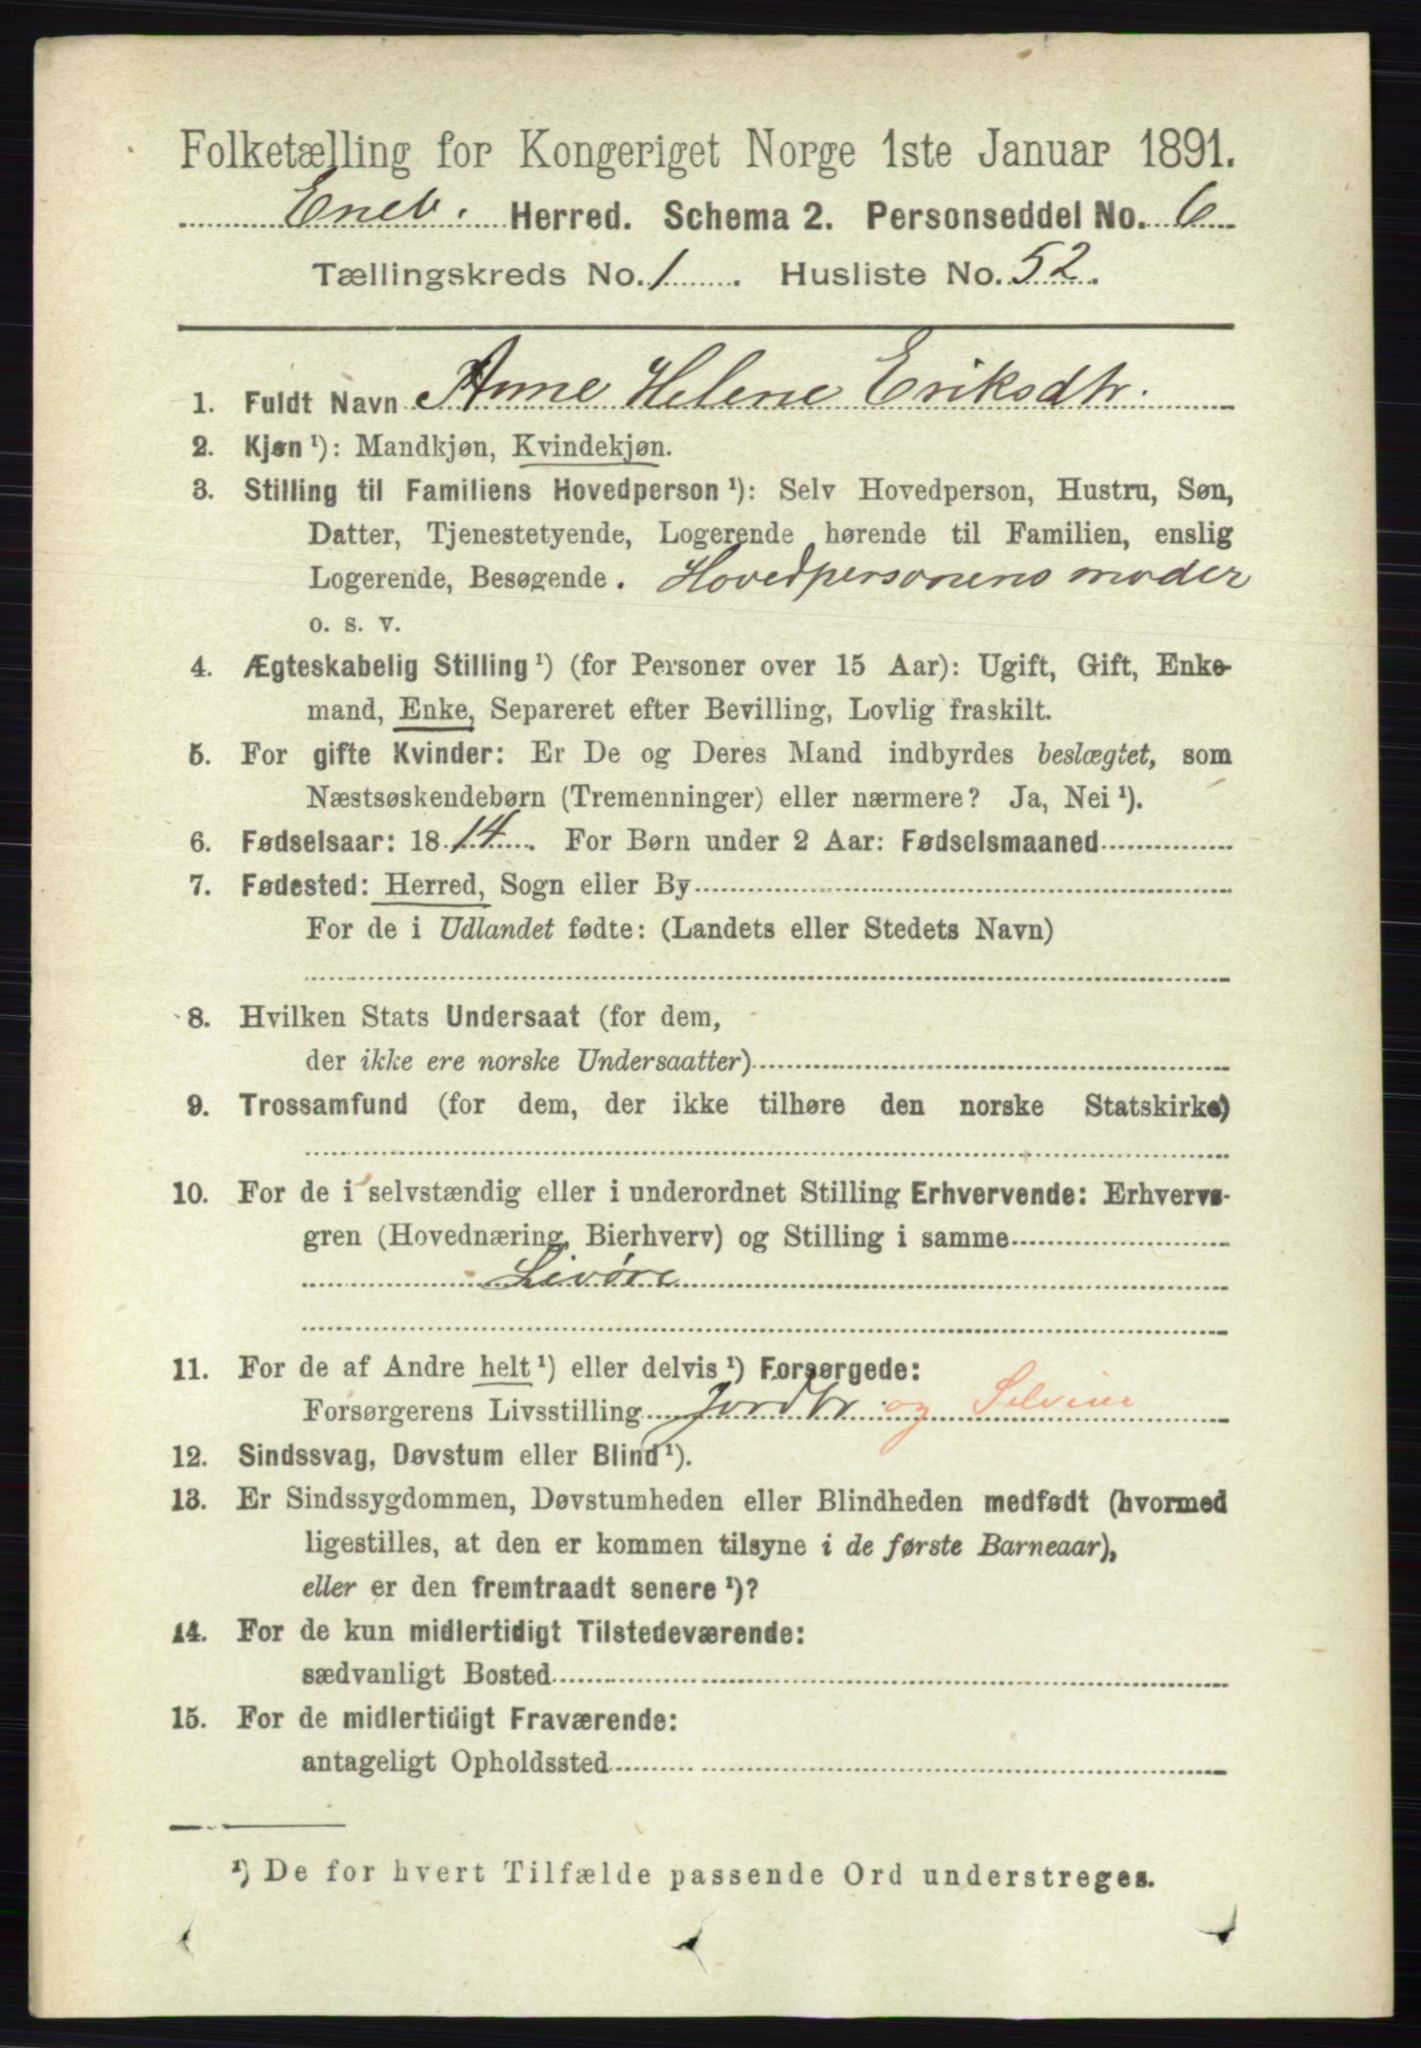 Folketælling for Kongeriget Norge 1ste Januar 1891.
Eneb. Herred. Schema 2. Personseddel No. 6
Tællingskreds No. 1. Husliste No. 52.
1. Fuldt Navn Anne Helene Eriksdtr.
2. Kjøn ¹): Mandkjøn, Kvindekjøn.
3. Stilling til Familiens Hovedperson ¹): Selv Hovedperson, Hustru, Søn,
Datter, Tjenestetyende, Logerende hørende til Familien, enslig
Logerende, Besøgende. Hovedpersonens moder
o. s. v.
4. Ægteskabelig Stilling ¹) (for Personer over 15 Aar): Ugift, Gift, Enke-
mand, Enke, Separeret efter Bevilling, Lovlig fraskilt.
5. For gifte Kvinder: Er De og Deres Mand indbyrdes beslægtet, som
Næstsøskendebørn (Tremenninger) eller nærmere? Ja, Nei ¹).
6. Fødselsaar: 1814. For Børn under 2 Aar: Fødselsmaaned
7. Fødested: Herred, Sogn eller By
For de i Udlandet fødte: (Landets eller Stedets Navn)
8. Hvilken Stats Undersaat (for dem,
der ikke ere norske Undersaatter)
9. Trossamfund (for dem, der ikke tilhøre den norske Statskirke)
10. For de i selvstændig eller i underordnet Stilling Erhvervende: Erhvervs-
gren (Hovednæring, Bierhverv) og Stilling i samme
Livøre
11. For de af Andre helt ¹) eller delvis ¹) Forsørgede:
Forsørgerens Livsstilling Jordbr og Selveier
12. Sindssvag, Døvstum eller Blind ¹).
13. Er Sindssygdommen, Døvstumheden eller Blindheden medfødt (hvormed
ligestilles, at den er kommen tilsyne i de første Barneaar),
eller er den fremtraadt senere ¹)?
14. For de kun midlertidigt Tilstedeværende:
sædvanligt Bosted
15. For de midlertidigt Fraværende:
antageligt Opholdssted
¹) De for hvert Tilfælde passende Ord understreges.